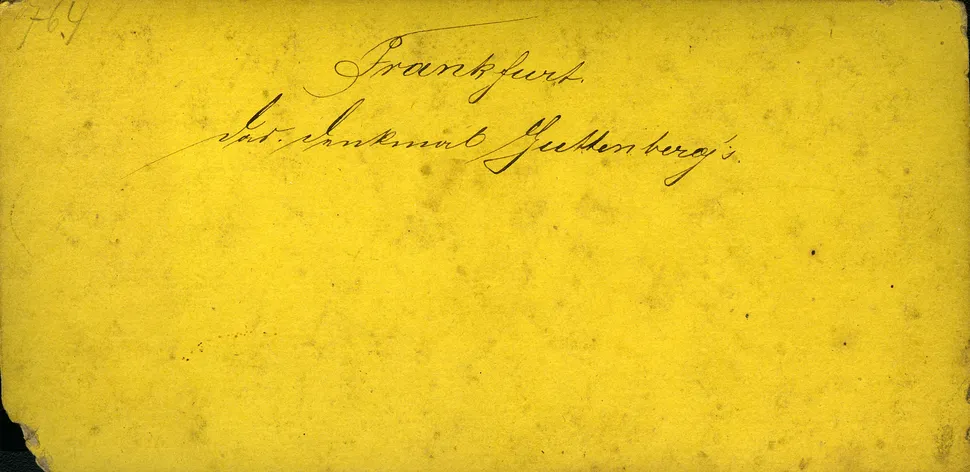 764
Frankfurt.
Das. Denkmal Guttenberg's.